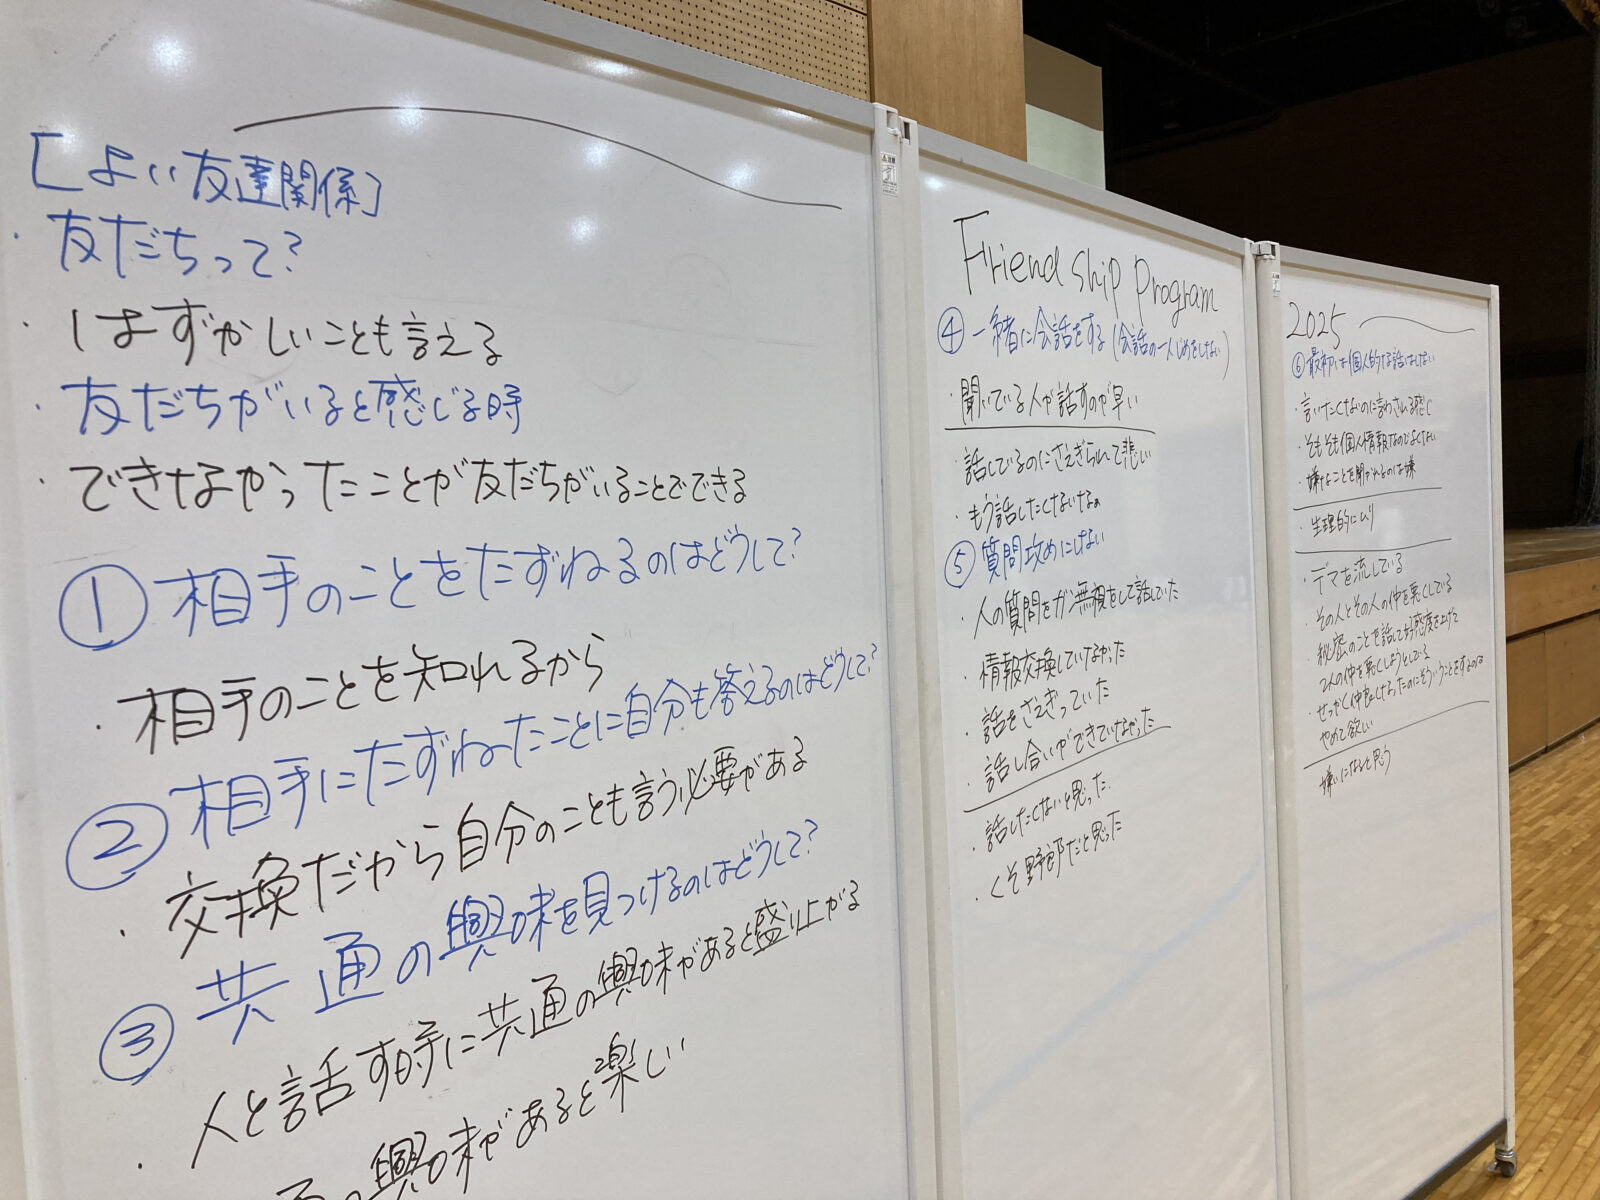 [よい友達関係]
・友だちって?
・はずかしいことも言える
・友だちがいると感じる時
・できなかったことが友だちがいることでできる
① 相手のことをたずねるのはどうして?
・相手のことを知れるから
② 相手にたずねたことに自分も答えるのはどうして?
・交換だから自分のことも言う必要がある
③ 共通の興味を見つけるのはどうして?
・人と話す時に共通の興味があると盛り上がる
興味があると楽しい
Friendship program
④ 一緒に会話をする(会話の一人じめをしない)
・聞いている人が話すのが早い
・話しているのにさえぎられて悲しい
・もう話したくないなぁ
⑤ 質問攻めにしない
・人の質問をガン無視をして話していた
・情報交換していなかった
・話をさえぎっていた
・話し合いができていなかった
・話したくないと思った
・くそ野郎だと思った
2025
⑥ 最初は個人的な話はしない
・言いたくないのに言わされる感じ
・そもそも個人情報なのでよくない
・嫌なことを聞かれるのは嫌
・生理的にムリ
・デマを流している
・その人とその人の仲を悪くしている
・秘密のことを話して好感度を上げて
2人の仲を悪くしようとしている
・せっかく仲良くしてたのにそういうことをするのは
やめて欲しい
・嫌いになると思う